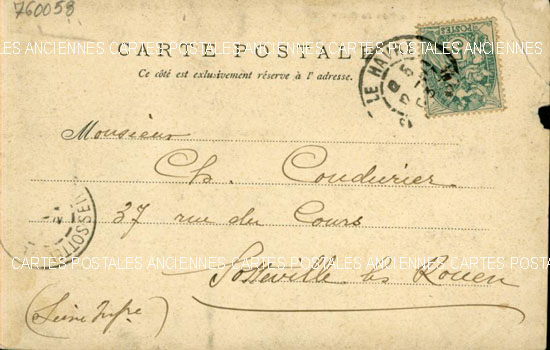 760053
CARTES POSTALES ANCIENNES CARTES POSTALES ANCIENNES CARTES POSTALES
CARTE POSTALE
Ce côté est exlusivement réserve à l'adresse.
POSTES
LE HA
Monsieur
Ch. Coudurier
37 rue du Cours
Sotteville les Rouen
(Seine Infre)
SOTTE
CARTES POSTALES ANCIENNES CARTES POSTALES ANCIENNES CARTES POSTALES